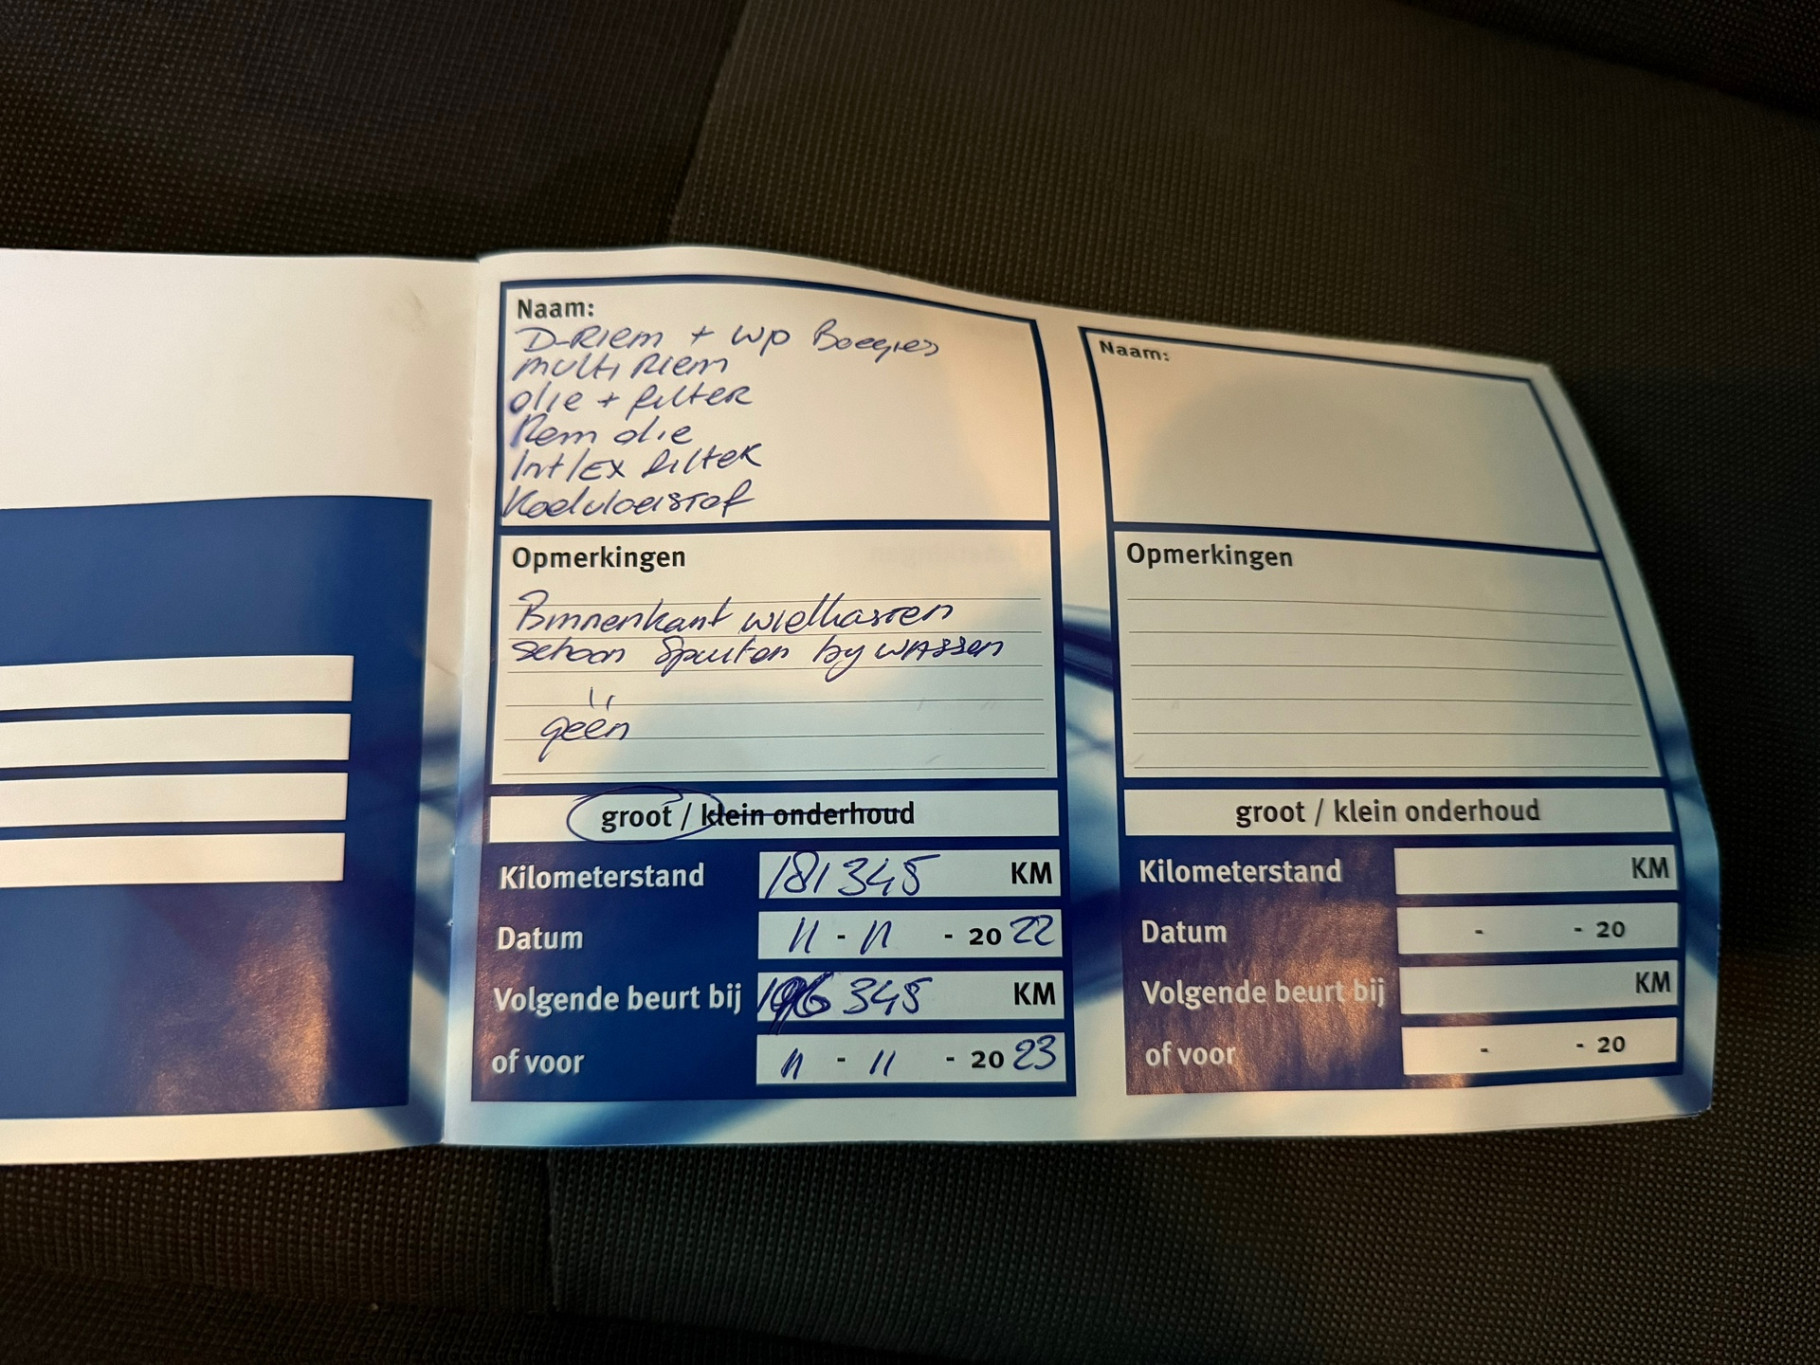 Naam:
D-Riem + WP Boegies
multi Riem
olie + filter
Rem olie
Int/Ex filter
Koelvloeistof
Opmerkingen
Binnenkant wielkasten
schoon spuiten by wassen
geën
groot / klein onderhoud
Kilometerstand 181345 KM
Datum 11 - 11 - 20 22
Volgende beurt bij 196 345 KM
of voor 11 - 11 - 20 23
Naam:
Opmerkingen
groot / klein onderhoud
Kilometerstand KM
Datum - - 20
Volgende beurt bij KM
of voor - - 20